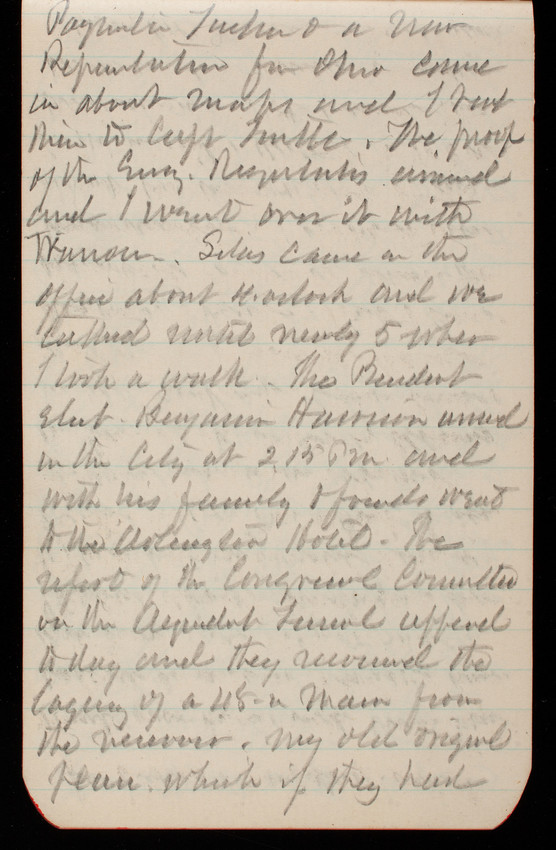 a new
Representative from Ohio came
in about maps and I sent
them to Capt . The proof
of the Regulations arrived
and I went over it with
. came in the
office about 4 oclock and we
talked until nearly 5 when
I took a walk. The President
elect Benjamin Harrison arrived
in the City at 2.15 P.m. and
with his family & friends went
to the Arlington Hotel. The
report of the Congress Committee
on the Aqueduct Tunnel appeared
to day and they recommend the
laying of a 48-in main from
the reservoir. My old original
plan. which if they had